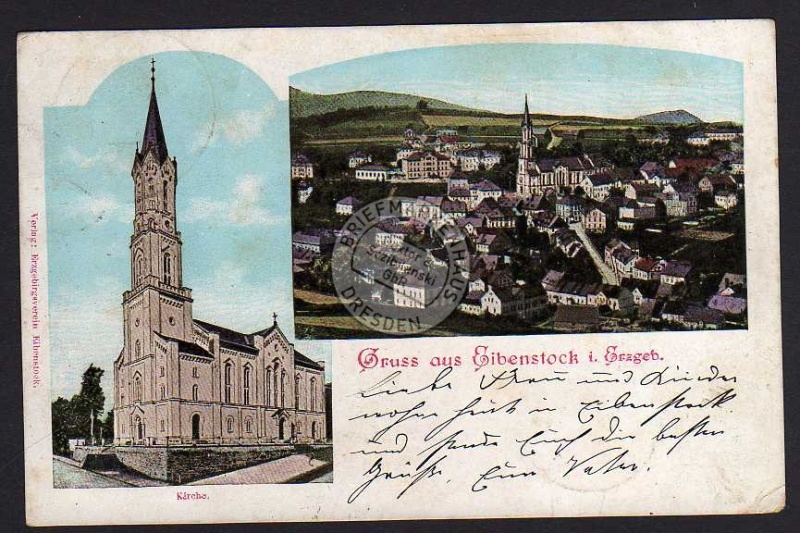 Verlag: Erzgebirgsverein Eibenstock.
Kirche.
BRIEFMARKENHAUS
DRESDEN
Gruss aus Eibenstock i. Erzgeb.
Liebe Frau und Kinder
wohne heute in Eibenstock
und sende Euch die besten
Grüße. Euer Vater.